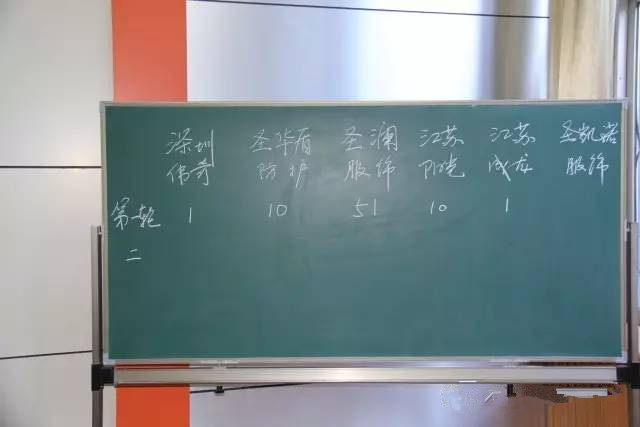 深圳 圣华盾 圣澜 江苏 江苏 圣凯诺
伟奇 防护 服饰 阳光 成龙 服饰
第一轮 1 10 51 10 1
二